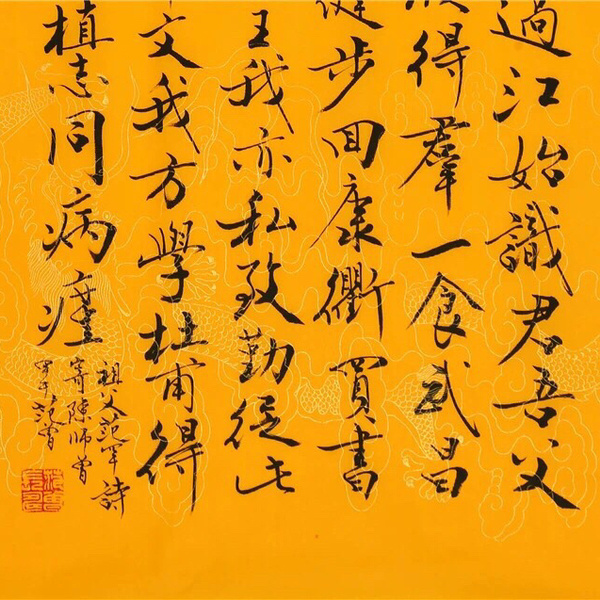 過江始識君吾父
得羣一食武昌
健步回康衢買書
王我亦私致勤從此
文我方學杜甫得
植志同病
祖父范罕詩
寄陳師曾
甲午范曾